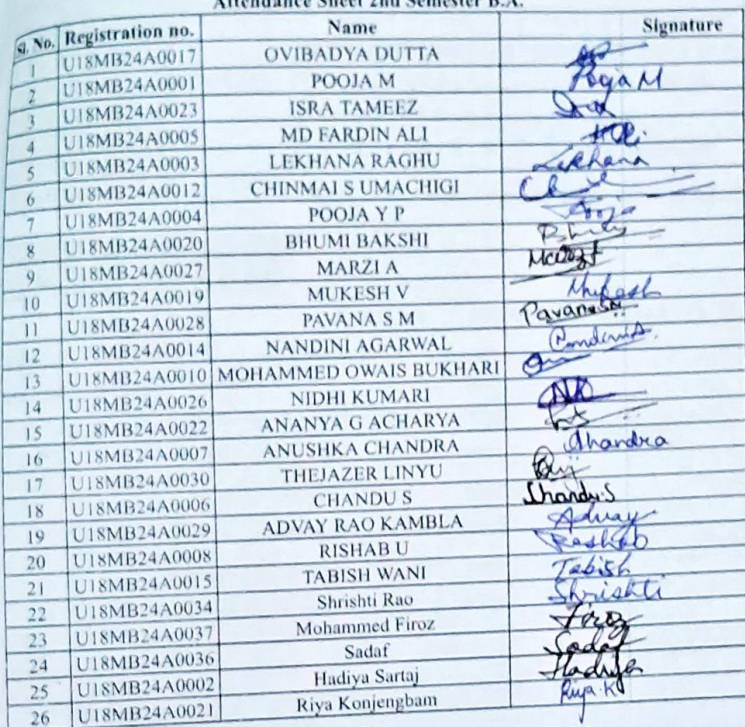 Attendance Sheet 2nd Semester B.A.
Sl. No. Registration no. Name Signature
1 U18MB24A0017 OVIBADYA DUTTA
2 U18MB24A0001 POOJA M Pooja M
3 U18MB24A0023 ISRA TAMEEZ
4 U18MB24A0005 MD FARDIN ALI
5 U18MB24A0003 LEKHANA RAGHU Lekhana
6 U18MB24A0012 CHINMAI S UMACHIGI
7 U18MB24A0004 POOJA Y P Pooja
8 U18MB24A0020 BHUMI BAKSHI
9 U18MB24A0027 MARZI A
10 U18MB24A0019 MUKESH V Mukesh
11 U18MB24A0028 PAVANA S M Pavana SM
12 U18MB24A0014 NANDINI AGARWAL
13 U18MB24A0010 MOHAMMED OWAIS BUKHARI
14 U18MB24A0026 NIDHI KUMARI
15 U18MB24A0022 ANANYA G ACHARYA
16 U18MB24A0007 ANUSHKA CHANDRA Chandra
17 U18MB24A0030 THEJAZER LINYU
18 U18MB24A0006 CHANDU S Chandu.S
19 U18MB24A0029 ADVAY RAO KAMBLA Advay
20 U18MB24A0008 RISHAB U Rishab
21 U18MB24A0015 TABISH WANI Tabish
22 U18MB24A0034 Shrishti Rao Shrishti
23 U18MB24A0037 Mohammed Firoz Firoz
24 U18MB24A0036 Sadaf Sadaf
25 U18MB24A0002 Hadiya Sartaj Hadiya
26 U18MB24A0021 Riya Konjengbam Riya.K